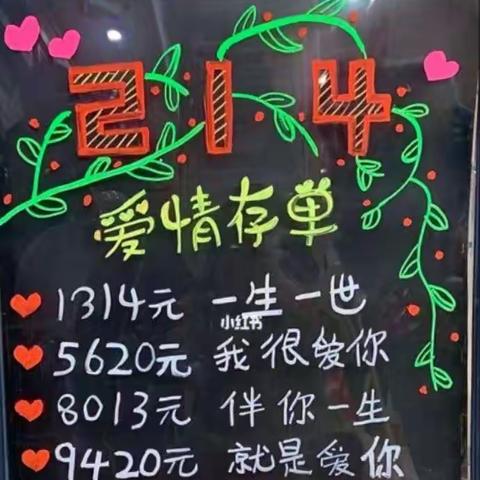 214
爱情存单
1314元 一生一世
小红书
5620元 我很爱你
8013元 伴你一生
9420元 就是爱你